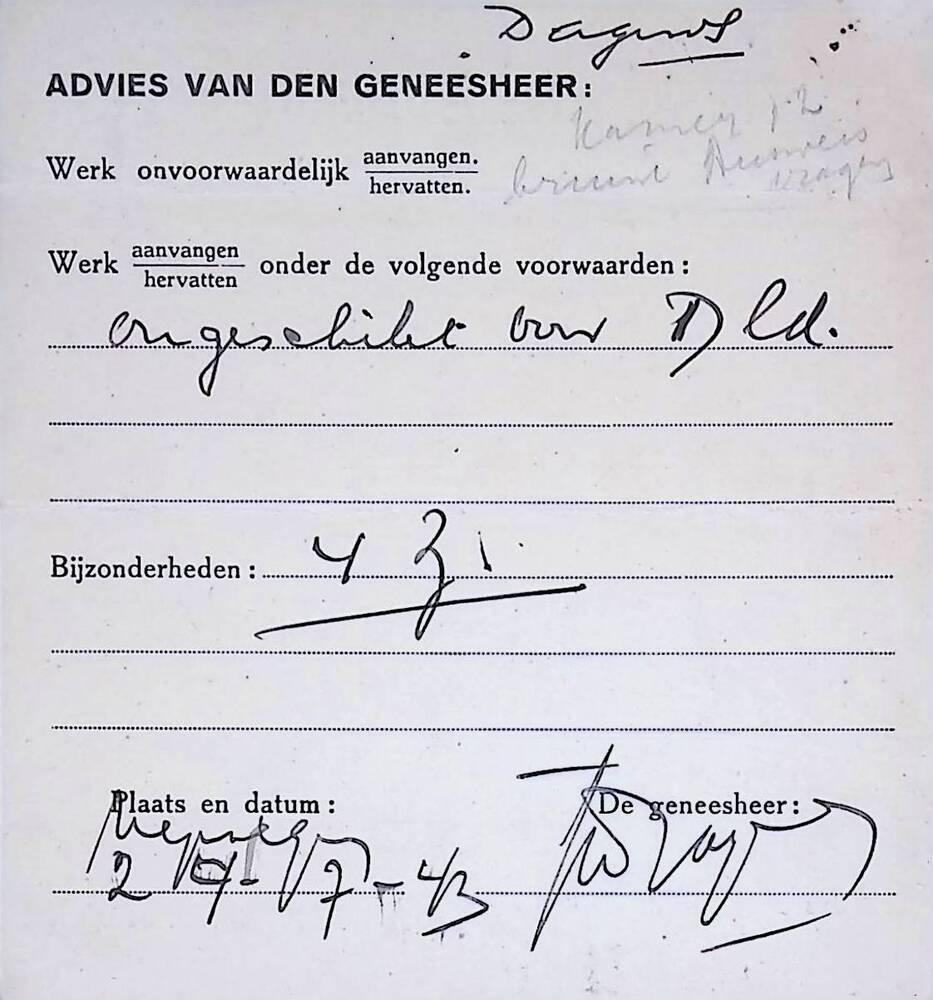 ADVIES VAN DEN GENEESHEER:
Kamer 12
Werk onvoorwaardelijk aanvangen.
hervatten.
Werk aanvangen
hervatten
onder de volgende voorwaarden:
ongeschikt voor Dld.
Bijzonderheden: 4 3.
Plaats en datum: De geneesheer:
24-7-43